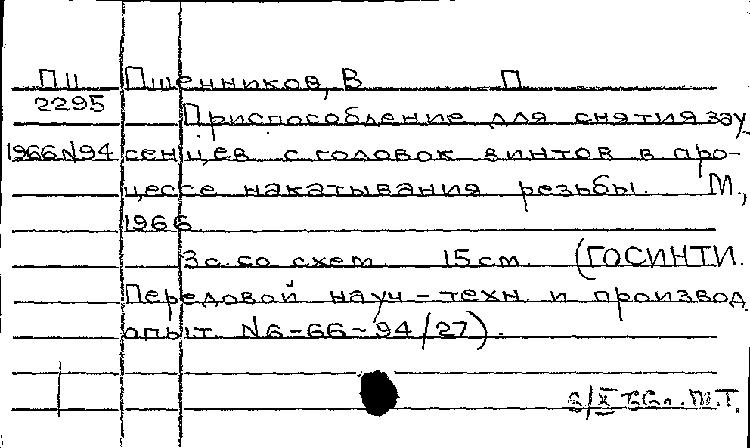 ПII Пшенников, В П
2295
Приспособление для снятия зау
1966 N94 сенцев с головок винтов в про-
цессе накатывания резьбы. М.,
1966
3с. со схем 15 см. (ГОСИНТИ.
Передовой науч-техн и производ
опыт. N6-66-94/27).
6/X 66г. М.Т.